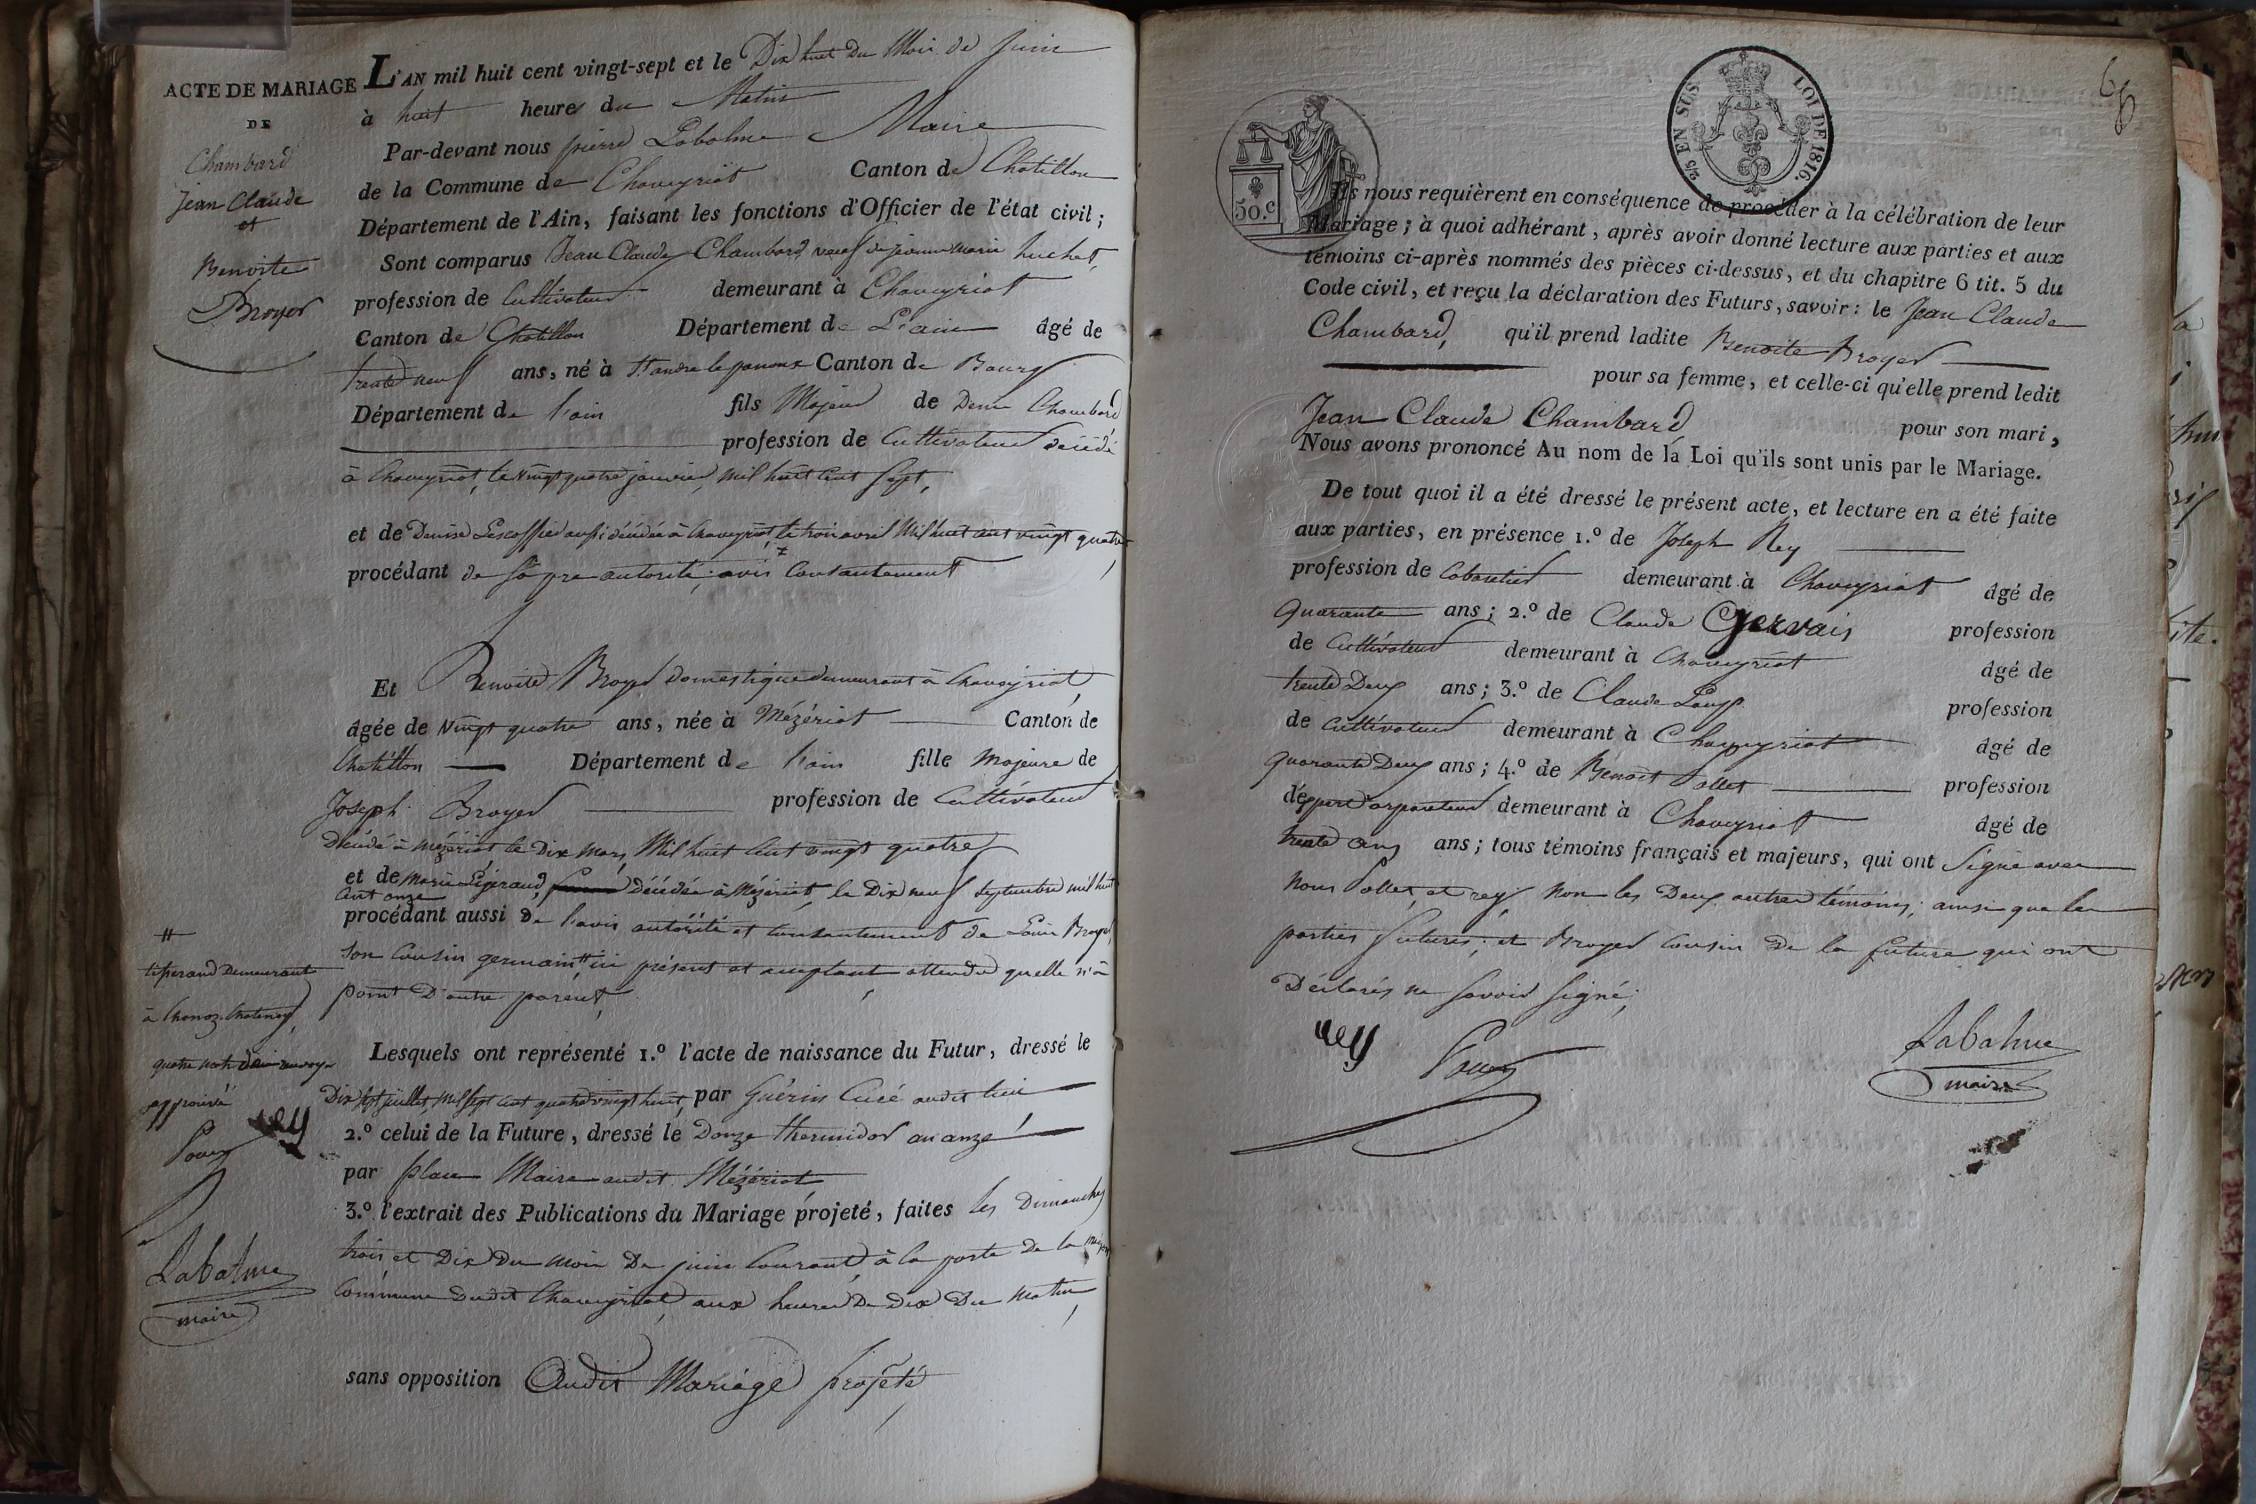 ACTE DE MARIAGE
DE
Chambard
Jean Claude
et
Benoite
Broyer
L'AN mil huit cent vingt-sept et le Dix huit Du Mois de Juin
à huit heures du Matin
Par-devant nous pierre Labalme Maire
de la Commune de Chaveyriat Canton de Chatillon
Département de l'Ain, faisant les fonctions d'Officier de l'état civil;
Sont comparus Jean Claude Chambard veuf de jeanne marie huchet,
profession de Cultivateur demeurant à Chaveyriat
Canton de Chatillon Département de L'ain âgé de
trente neuf ans, né à St andre le panoux Canton de Bourg
Département de l'ain fils Majeur de Denis Chambard
profession de Cultivateur décédé
à Chaveyriat, le vingt quatre janvier, mil huit cent sept,
et de Denise Lescoffier aussi décédée à Chaveyriat, le trois avril Mil huit cent vingt quatre
procédant de sa pre autorité; avis Contantement
Et Benoite Broyer domestique demeurant à Chaveyriat,
âgée de Vingt quatre ans, née à Mézériat Canton de
Chatillon Département de l'ain fille Majeure de
Joseph Broyer profession de Cultivateur
Décédé à Mézériat le Dix Mars Mil huit Cent vingt quatre
et de Marie Ligeraud, Décédée à Mézériat, le Dix neuf Septembre mil huit
Cent onze
procédant aussi De l'avis autorité et Contantement de Louis Broyer,
Son Cousin germain # ici présent et acceptant attendu quelle n'a
point D'autre parent,
#
demeurant
à Chanoz-Chatenay,
quatre mots
approuvé
rey
Labalme
maire
Lesquels ont représenté 1.º l'acte de naissance du Futur, dressé le
Dix sept juillet, Mil sept cent quatre vingt huit, par Guérin Curé audit lieu
2.º celui de la Future, dressé le Douze thermidor an onze
par place Maire audit Mézériat
3.º l'extrait des Publications du Mariage projeté, faites les Dimanches
trois et Dix Du mois De juin Courant, à la porte De la maison
Commune Dudit Chaveyriat, aux heures De Dix Du Matin,
sans opposition Audit Mariage projeté,
68
2/5 EN SUS LOI DE 1816.
50.c
Ils nous requièrent en conséquence de procéder à la célébration de leur
Mariage; à quoi adhérant, après avoir donné lecture aux parties et aux
témoins ci-après nommés des pièces ci-dessus, et du chapitre 6 tit. 5 du
Code civil, et reçu la déclaration des Futurs, savoir: le Jean Claude
Chambard, qu'il prend ladite Benoite Broyer
pour sa femme, et celle-ci qu'elle prend ledit
Jean Claude Chambard pour son mari,
Nous avons prononcé Au nom de la Loi qu'ils sont unis par le Mariage.
De tout quoi il a été dressé le présent acte, et lecture en a été faite
aux parties, en présence 1.º de Joseph Rey
profession de Cabaretier demeurant à Chaveyriat âgé de
Quarante ans; 2.º de Claude Gervais profession
de Cultivateur demeurant à Chaveyriat âgé de
trente Deux ans; 3.º de Claude Loup profession
de Cultivateur demeurant à Chaveyriat âgé de
Quarante Deux ans; 4.º de Benoit Pollet profession
d'expert arpenteur demeurant à Chaveyriat âgé de
trente cinq ans; tous témoins français et majeurs, qui ont Signé avec
nous Pollet, et rey, Non les Deux autres témoins; ainsi que les
parties futures; et Broyer Cousin De la future qui ont
Déclarés ne Savoir Signé;
rey
Labalme
maire